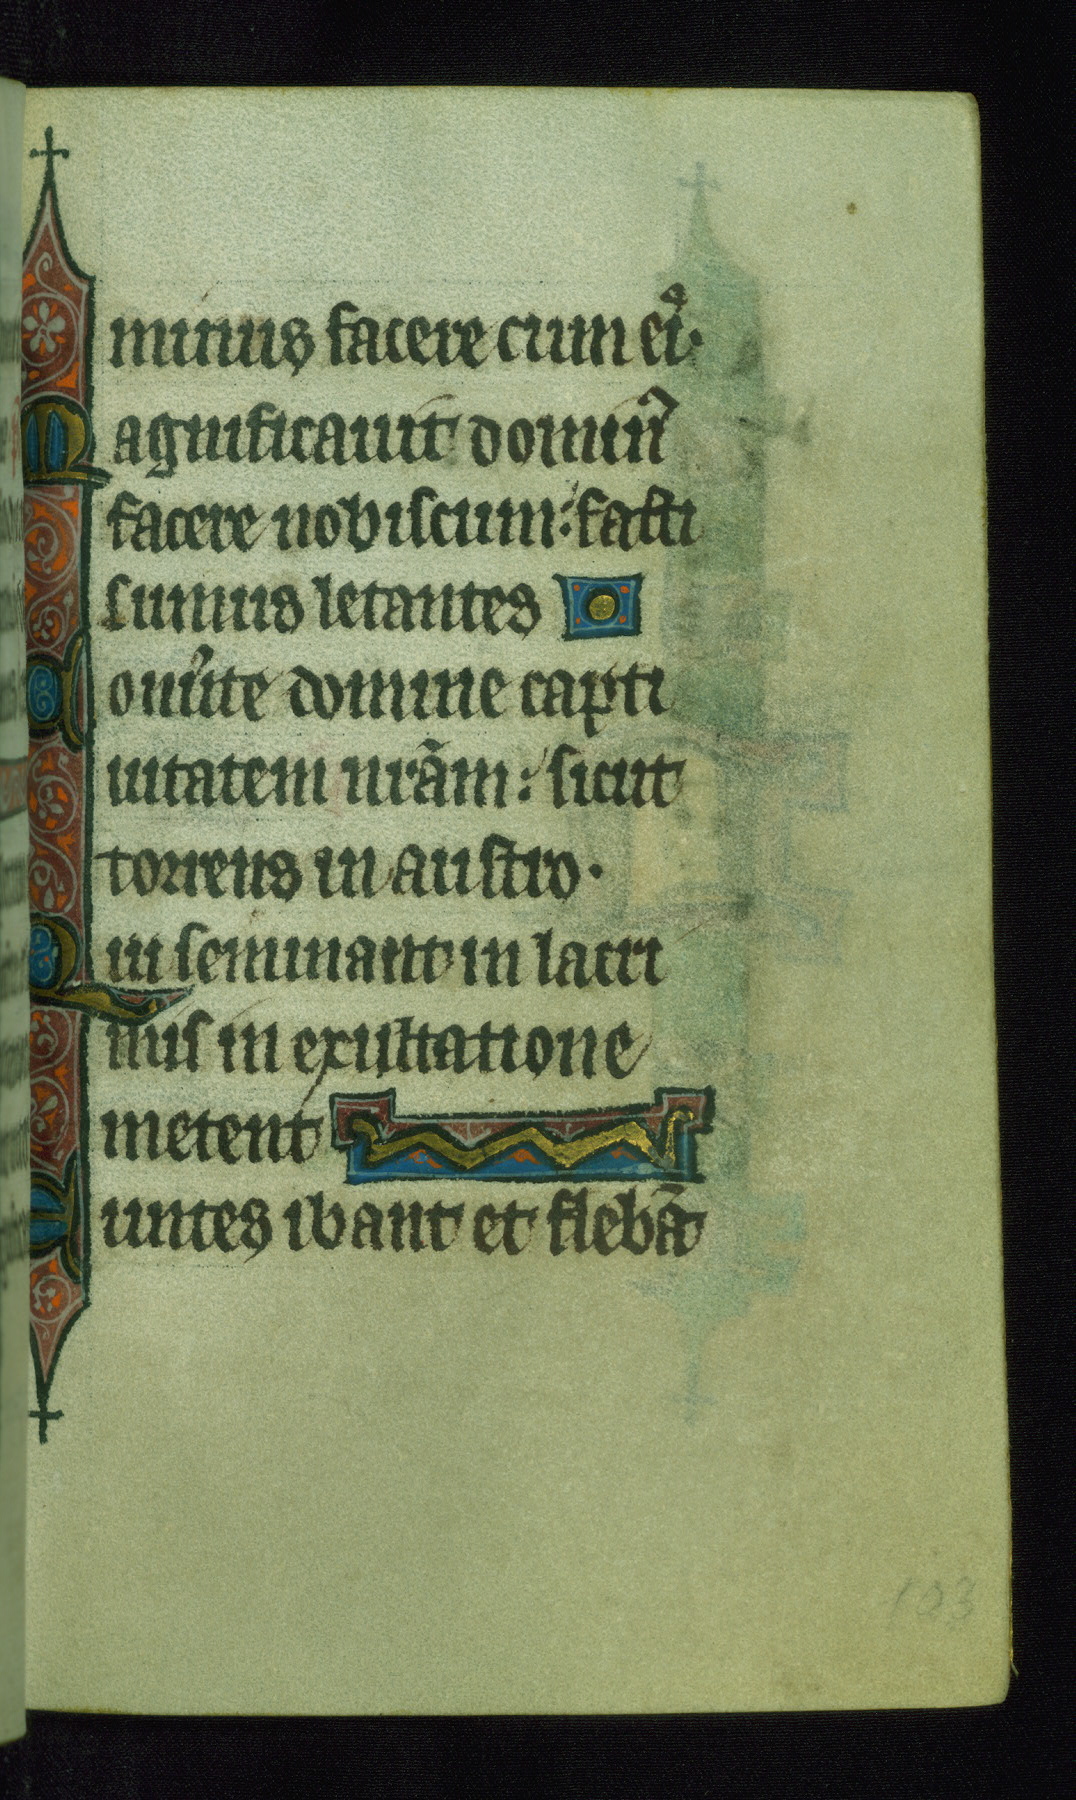 minus facere cum eis.
Magnificauit domin᷒
facere nobiscum: facti
sumus letantes
Conu̾te domine capti
uitatem nr̄am: sicut
torrens in austro.
Qui seminant in lacri
mis in exultatione
metent
Euntes ibant et flebāt
103